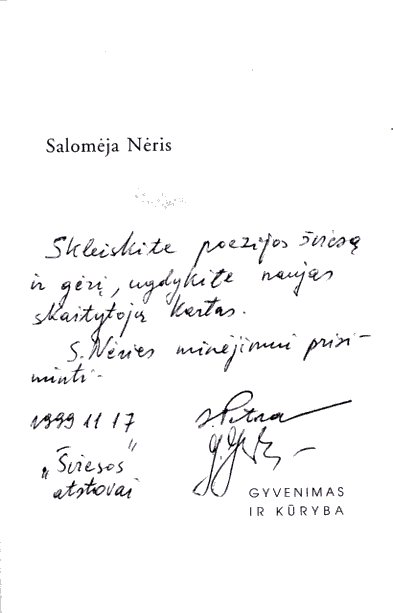 Salomėja Nėris
Skleiskite poezijos šviesą
ir gėrį, ugdykite naujas
skaitytojų kartas.
S. Nėries minėjimui prisi-
minti-
1999 11 17
„Šviesos"
atstovai
GYVENIMAS
IR KŪRYBA